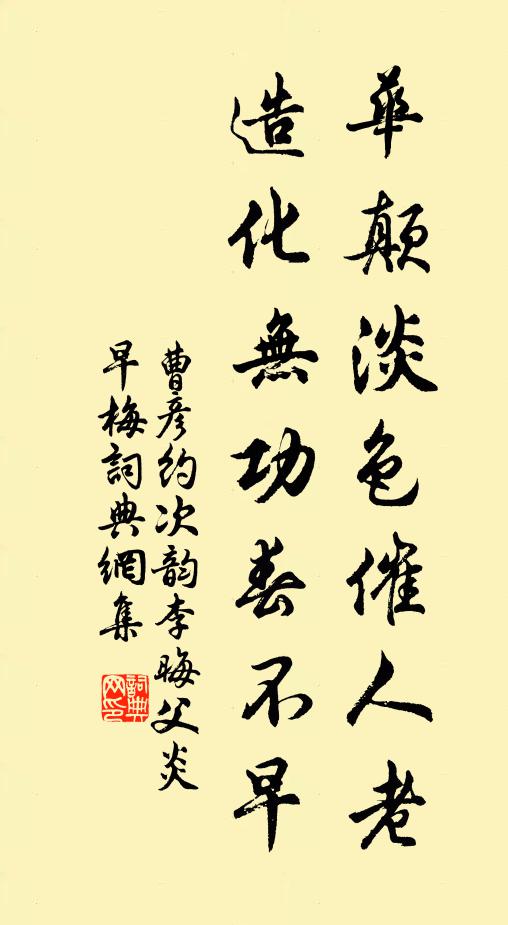 華顛淡色催人老
造化無功春不早
曹彦約次韵李晦父炎
早梅詞典網集
詞典网印